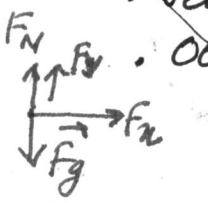 F_N
F_y
F_x
F_g